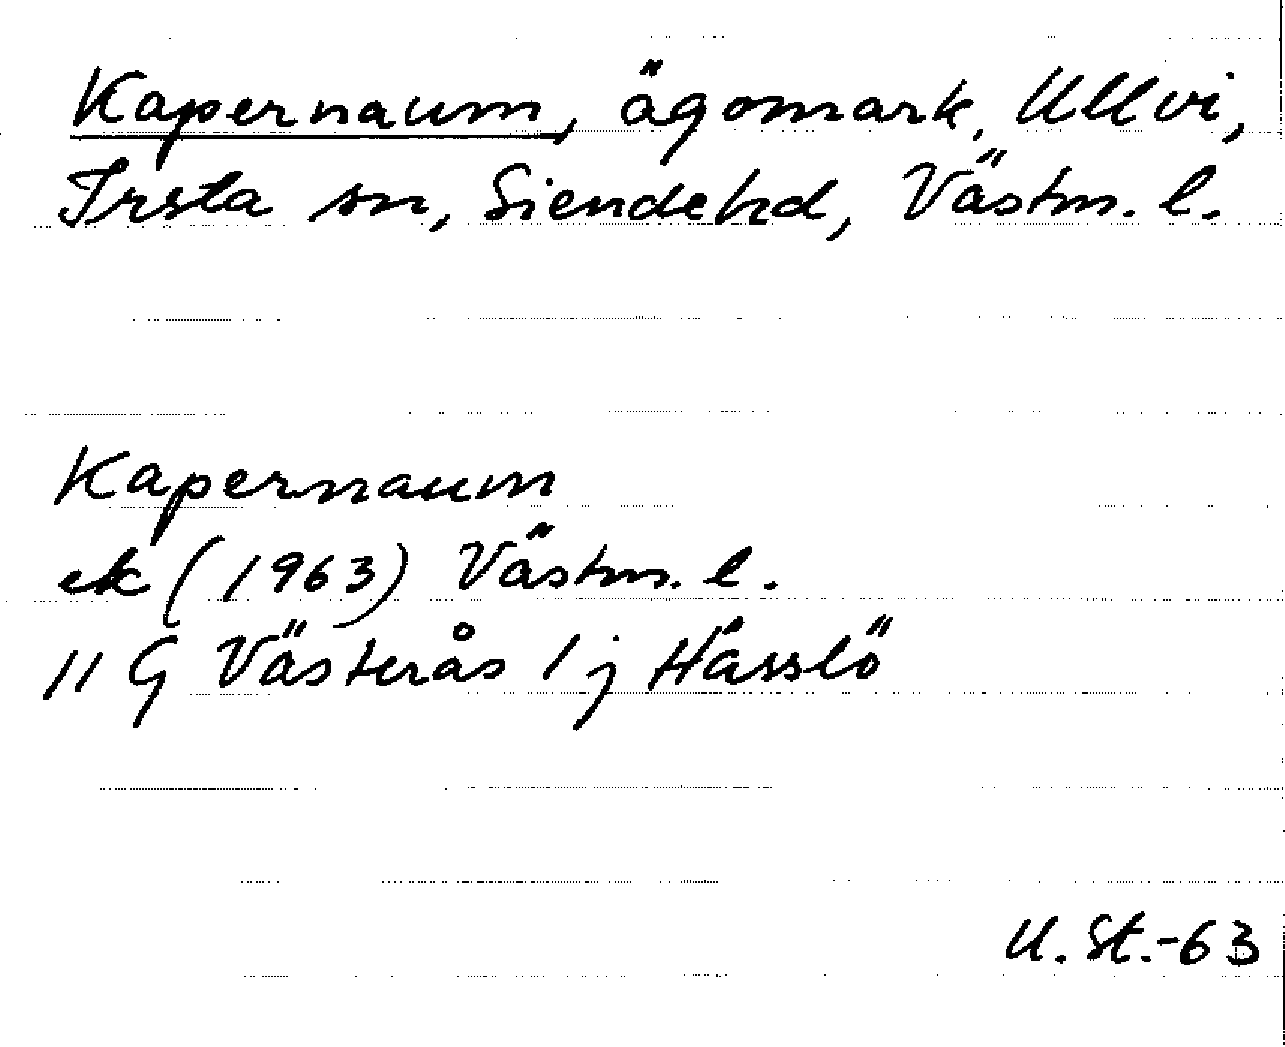 Kapernaum, ägomark, Ullvi,
Irsta sn, Siendehd, Västm. l.
Kapernaum
ek (1963) Västm. l.
11 G Västerås 1 j Hässlö
U. St.-63